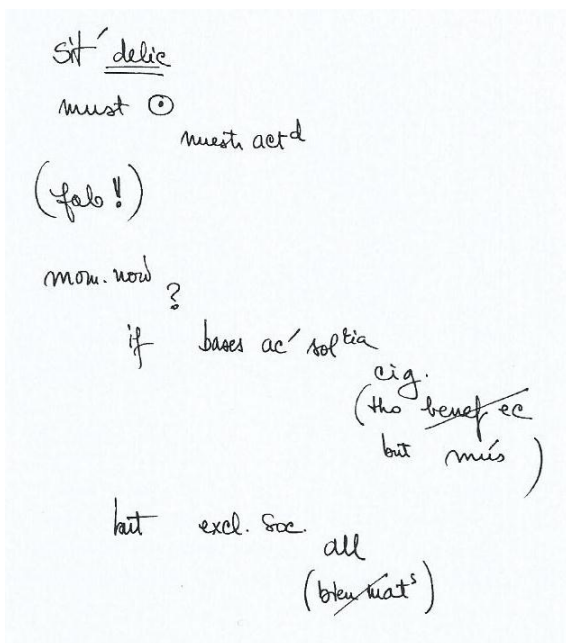 sit´ delic
must ⊙
nuestr actd
(fab!!)
mom. now
?
if bases ac´ soltia
cig.
(tho benef ec
but más)
but excl. soc.
all
(bien mats)